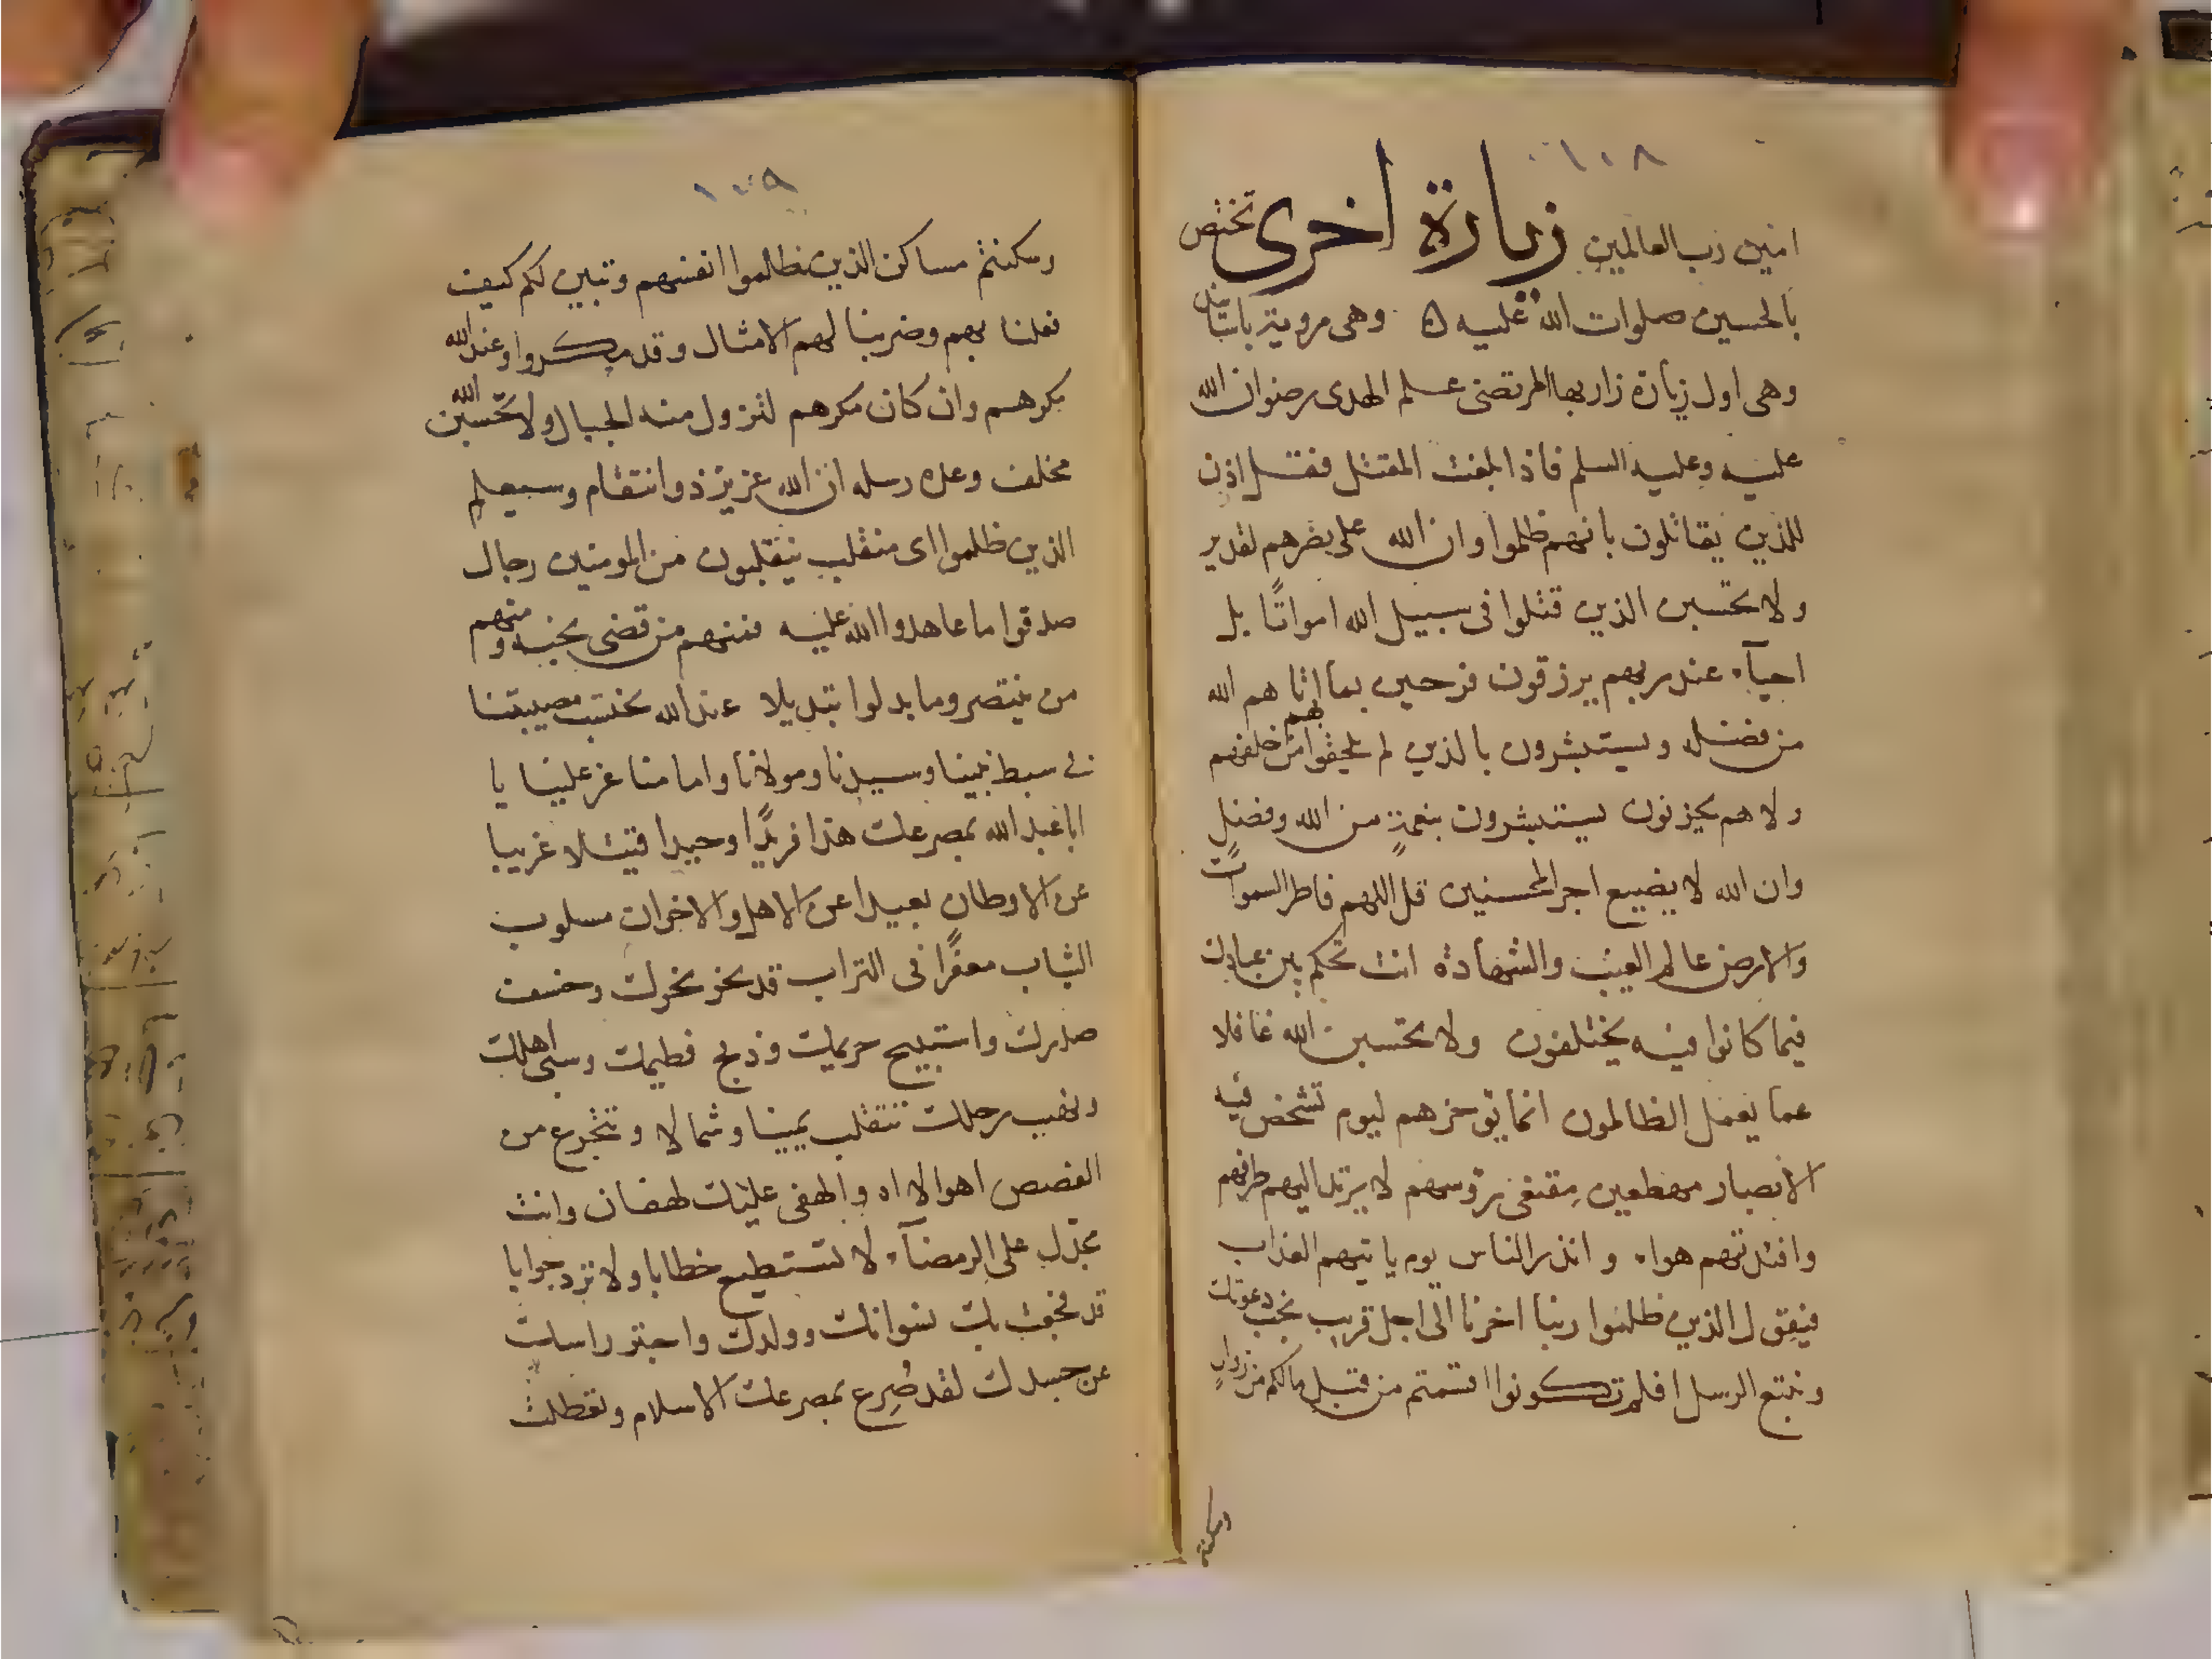 ١٠٨
امين رب العالمين زيارة اخرى تختص
بالحسين صلوات الله عليه وهى مروية باسانيد
وهى اول زيارة زار بها المرتضى علم الهدى رضوان الله
عليه وعليه السلم فاذا بلغت المقتل فقل اذن
للذين يقاتلون بانهم ظلموا وان الله على نصرهم لقدير
ولا تحسبن الذين قتلوا فى سبيل الله امواتًا بل
احيآء عند ربهم يرزقون فرحين بما اتاهم الله
من فضله ويستبشرون بالذين لم يلحقوا بهم من خلفهم
ولا هم يحزنون يستبشرون بنعمةٍ من الله وفضلٍ
وان الله لا يضيع اجر المحسنين قل اللهم فاطر السموات
والارض عالم الغيب والشهادة انت تحكم بين عبادك
فيما كانوا فيه يختلفون ولا تحسبن الله غافلا
عما يعمل الظالمون انما يؤخرهم ليوم تشخص فيه
الابصار مهطعين مقنعى رؤسهم لا يرتد اليهم طرفهم
وافئدتهم هواء وانذر الناس يوم ياتيهم العذاب
فيقول الذين ظلموا ربنا اخرنا الى اجل قريب نجب دعوتك
ونتبع الرسل افلم تكونوا اقسمتم من قبل مالكم من زوالٍ
وسكنتم
١٠٩
وسكنتم مساكن الذين ظلموا انفسهم وتبين لكم كيف
فعلنا بهم وضربنا لهم الامثال وقد مكروا وعند الله
مكرهم وان كان مكرهم لتزول منه الجبال ولا تحسبن الله
مخلف وعده رسله ان الله عزيز ذو انتقام وسيعلم
الذين ظلموا اى منقلب ينقلبون من المومنين رجال
صدقوا ما عاهدوا الله عليه فمنهم من قضى نحبه ومنهم
من ينتصر وما بدلوا تبديلا عند الله نحتسب مصيبتنا
فى سبط نبينا وسيدنا ومولانا وامامنا عز علينا يا
ابا عبد الله بمصرعك هذا فريدًا وحيدا قتيلا غريبا
عن الاوطان بعيدا عن الاهل والاخوان مسلوب
الثياب معفرًا فى التراب قد نحر نحرك وخسف
صدرك واستبيح حريمك وذبح فطيمك وسبى اهلك
ونهب رحلك تتقلب يمينا وشمالا وتتجرع من
الغصص اهوالا اه والهفى عليك لهفان وانت
مجدل على الرمضآء لا تستطيع خطابا ولا ترد جوابا
قد فجعت بك نسوانك وولدك واحتز راسك
عن جسدك لقد صُرِع بمصرعك الاسلام وتعطلت